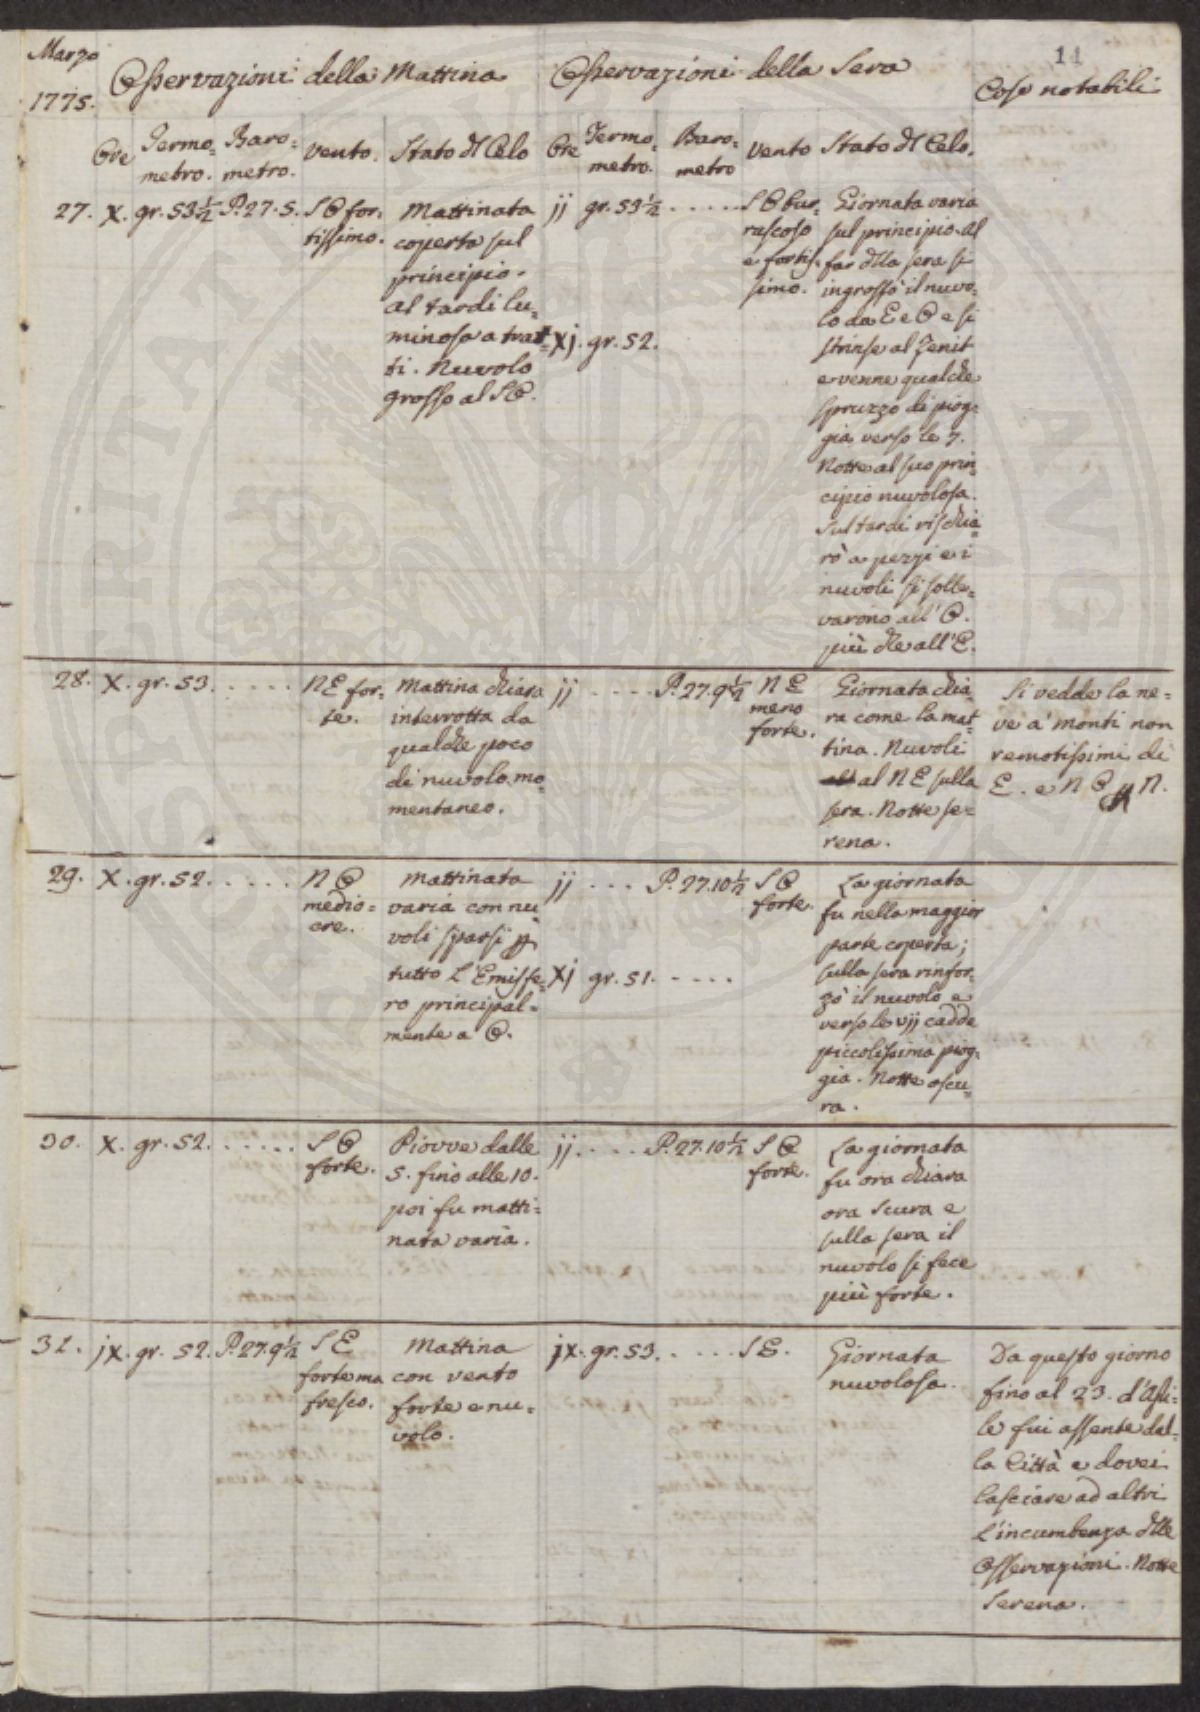 Marzo
1775.
Osservazioni della Mattina
Osservazioni della Sera
11
Cose notabili
Ore Termo=metro. Baro=metro. vento. Stato dl Celo
Ore Termo=metro. Baro=metro vento Stato dl Celo.
27. X. gr. 53½ P. 27. 5. SO for=
tissimo.
Mattinata
coperta sul
principio.
al tardi lu=
minosa a trat=
ti. Nuvolo
grosso al SO.
jj gr. 53½ . . . . .
xj. gr. 52.
SO bur=
rascoso
e fortis=
simo.
Giornata varia
sul principio. al
far dlla sera si
ingrossò il nuvo=
lo da E e O e si
strinse al Zenit
e venne qualche
spruzzo di piog=
gia verso le 7.
Notte al suo prin=
cipio nuvolosa.
Sul tardi rischia=
rò a pezzi e i
nuvoli si solle=
varono all' O.
più che all' E.
28. X. gr. 53. . . . . .
NE for=
te.
Mattina chiara
interrotta da
qualche poco
di nuvolo mo=
mentaneo.
jj . . . . P. 27. 9½
NE
meno
forte.
Giornata chia=
ra come la mat=
tina. Nuvoli
al NE sulla
sera. Notte se=
rena.
Si vedde la ne=
ve a' monti non
remotissimi di
E. e NO N.
29. X. gr. 52. . . . . .
NO
medio=
cre.
Mattinata
varia con nu
voli sparsi p
tutto l'Emisfe=
ro principal=
mente a O.
jj . . . . P. 27. 10½
xj gr. 51. . . . .
SO
forte.
La giornata
fu nella maggior
parte coperta;
sulla sera rinfor=
zò il nuvolo e
verso le vjj cadde
piccolissima piog=
gia. Notte oscu=
ra.
30. X. gr. 52. . . . . .
SO
forte.
Piovve dalle
5. fino alle 10.
poi fu matti=
nata varia.
jj. . . . . P. 27. 10½
SO
forte.
La giornata
fu ora chiara
ora scura e
sulla sera il
nuvolo si fece
più forte.
31. jx. gr. 52. P. 27. 9½
SE
forte ma
fresco.
Mattina
con vento
forte e nu=
volo.
jx. gr. 53. . . . .
SE.
Giornata
nuvolosa.
Da questo giorno
fino al 23. d'Apri=
le fui assente dal=
la Città e dovei
lasciare ad altri
l'incumbenza dlle
Osservazioni. Notte
Serena.